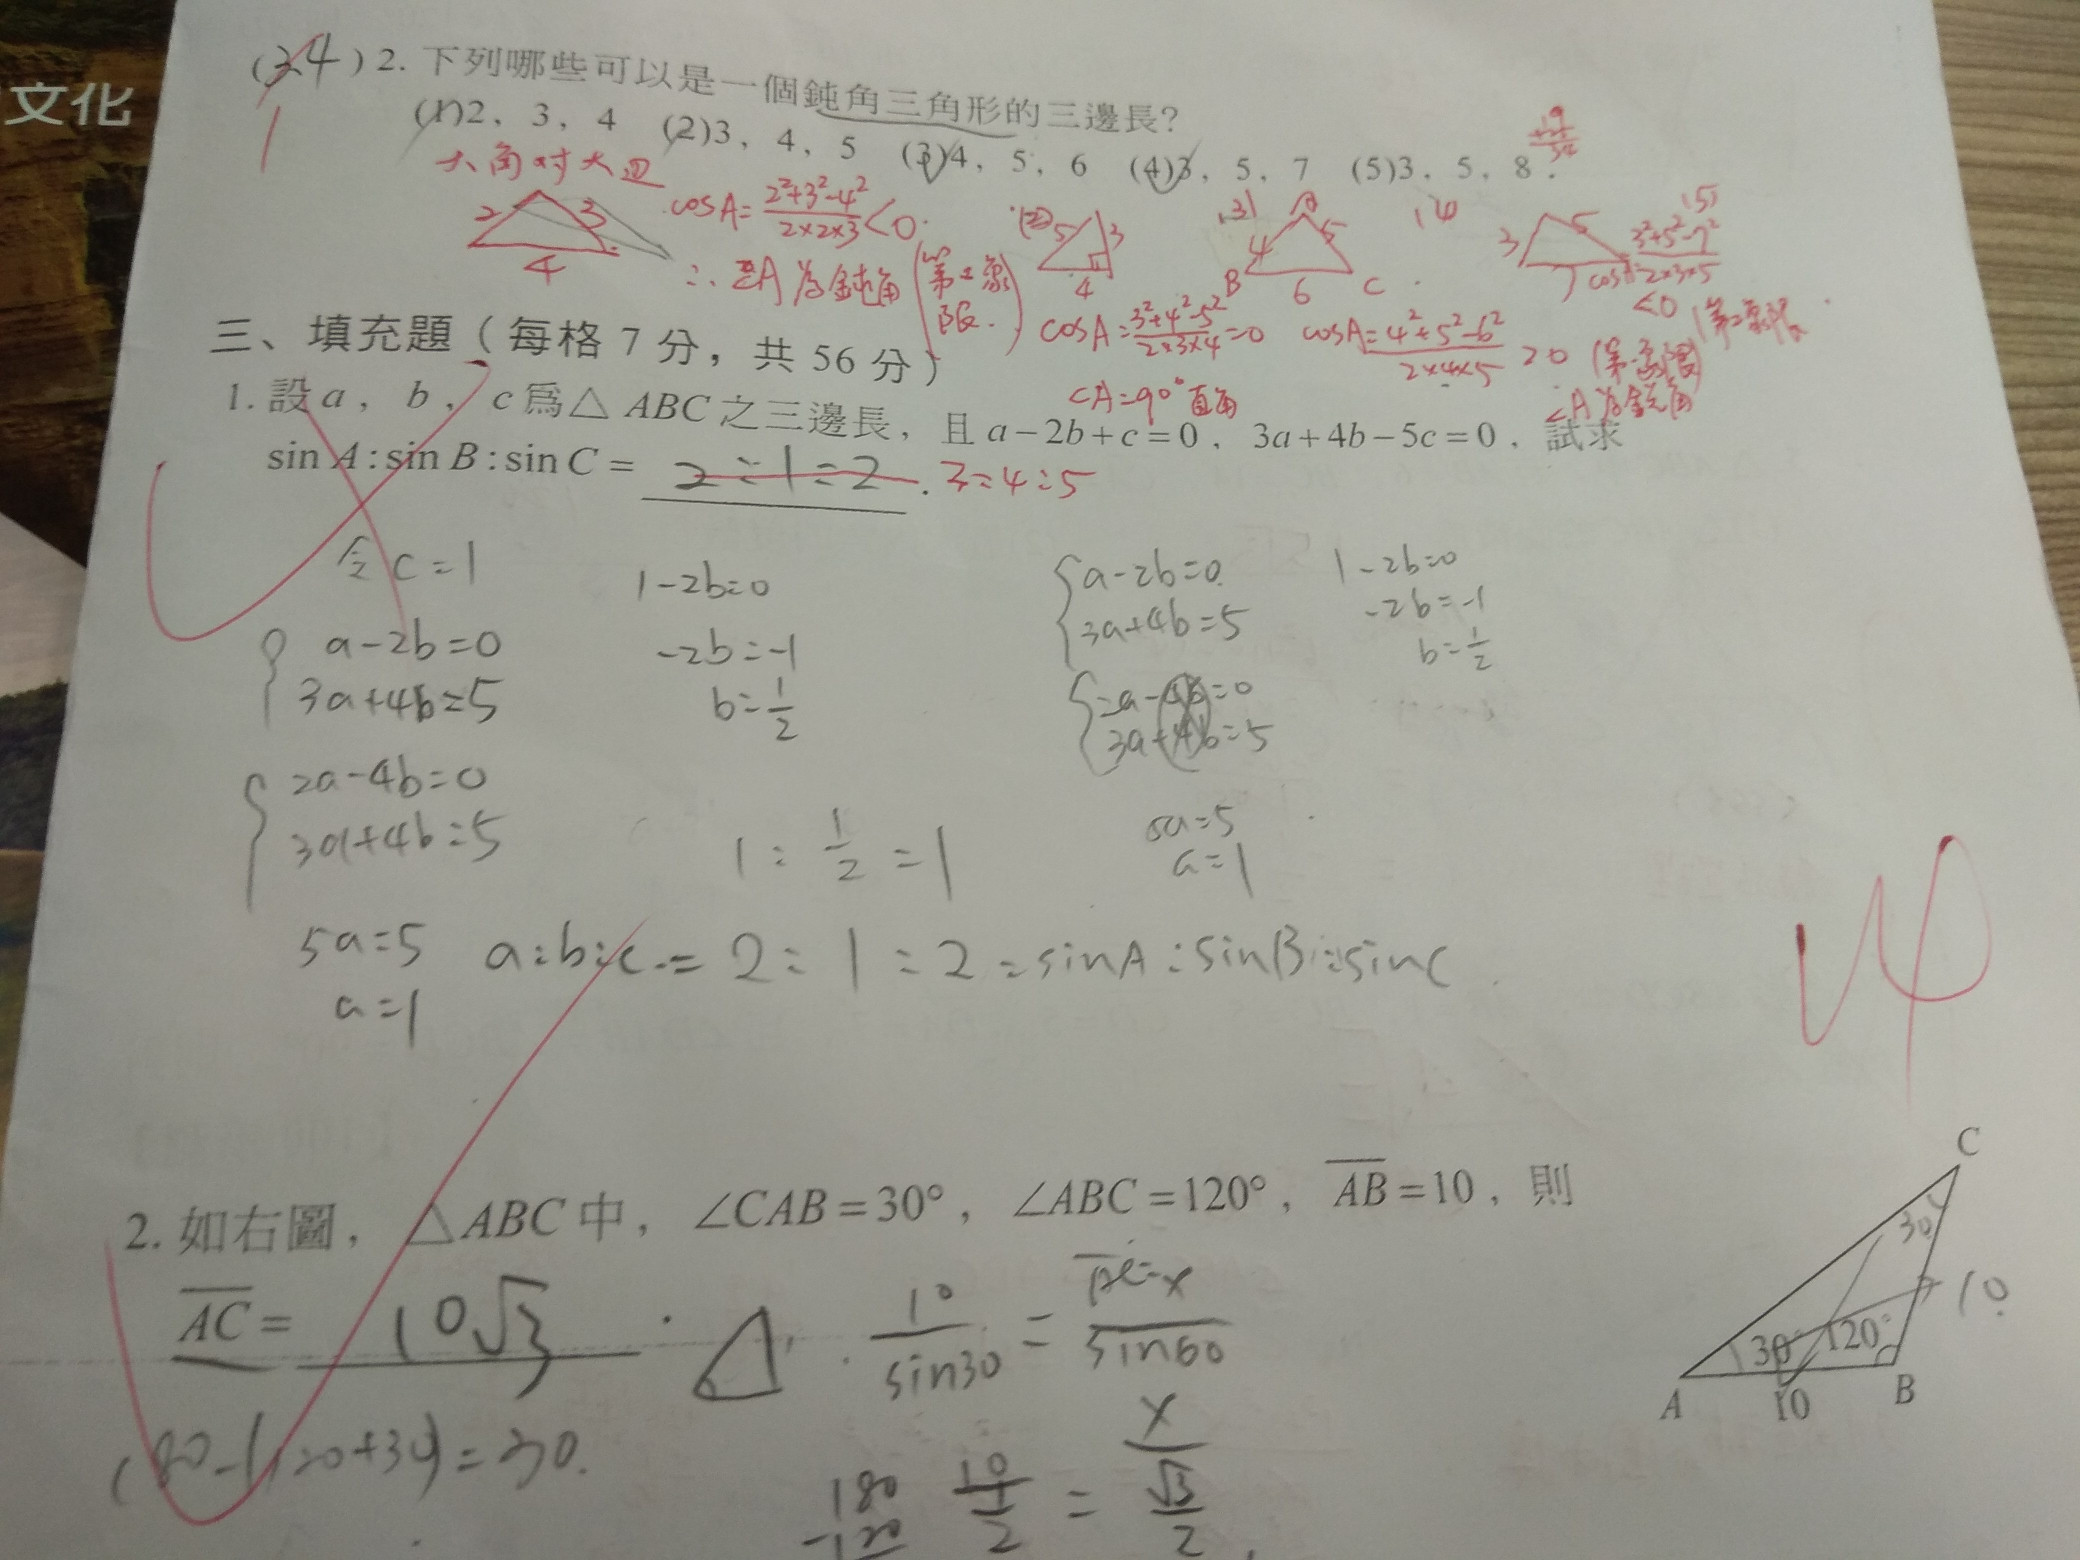 文化
(34) 2. 下列哪些可以是一個鈍角三角形的三邊長?
1
(1)2, 3, 4 (2)3, 4, 5 (3)4, 5, 6 (4)3, 5, 7 (5)3, 5, 8.
大角对大边
2 3 4
cosA=(2²+3²-4²)/(2×2×3)<0.
∴ ∠A 为鈍角(第二象限.)
(2) 5 3 4
cosA=(3²+4²-5²)/(2×3×4)=0
∠A=90°直角
(3) A 4 5 B 6 C
cosA=(4²+5²-6²)/(2×4×5)>0 (第一象限)
∠A为銳角
(4) 3 5 7
(5)
cosA=(3²+5²-7²)/(2×3×5)
<0 (第二象限
三、填充題(每格 7 分,共 56 分)
1. 設 a, b, c 爲△ABC 之三邊長,且 a−2b+c=0, 3a+4b−5c=0, 試求
sin A:sin B:sin C= 2:1:2 . 3:4:5
令 c=1
a-2b=0
3a+4b=5
2a-4b=0
3a+4b=5
5a=5
a=1
1-2b=0
-2b=-1
b=1/2
1:1/2=1
a-2b=0
3a+4b=5
=a-4b=0
3a+4b=5
5a=5
a=1
1-2b=0
-2b=-1
b=1/2
a:b:c.=2:1:2=sinA:sinB:sinC
2. 如右圖, △ABC 中, ∠CAB=30°, ∠ABC=120°, AB=10, 則
AC= 10√3 .
10/sin30 = AC=x/sin60
180-(120+30)=30.
180
-120
10/(1/2) = x/(√3/2)
C
30
10
30° 120°
A 10 B